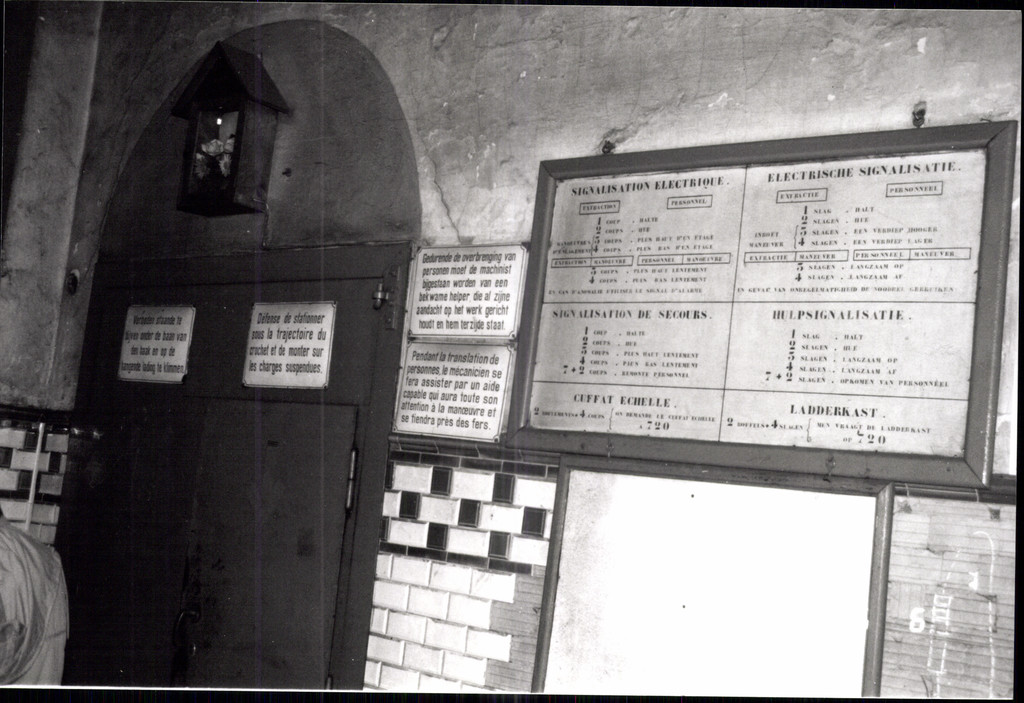 Verboden staande te
blijven onder de baan van
den haak en op de
hangende lading te klimmen.
Défense de stationner
sous la trajectoire du
crochet et de monter sur
les charges suspendues.
Gedurende de overbrenging van
personen moet de machinist
bijgestaan worden van een
bekwame helper die al zijne
aandacht op het werk gericht
houdt en hem terzijde staat.
Pendant la translation de
personnes, le mécanicien se
fera assister par un aide
capable qui aura toute son
attention à la manœuvre et
se tiendra près des fers.
SIGNALISATION ELECTRIQUE.
EXTRACTION PERSONNEL
1 COUP . HALTE
2 COUPS . HUE
MANOEUVRES 3 COUPS . PLUS HAUT D'UN ETAGE
4 COUPS . PLUS BAS D'UN ETAGE
EXTRACTION MANŒUVRE PERSONNEL MANŒUVRE
3 COUPS . PLUS HAUT LENTEMENT
4 COUPS . PLUS BAS LENTEMENT
EN CAS D'ANOMALIE UTILISEZ LE SIGNAL D'ALARME
ELECTRISCHE SIGNALISATIE.
EXTRACTIE PERSONNEEL
1 SLAG . HALT
2 SLAGEN . HUE
3 SLAGEN . EEN VERDIEP HOOGER
MANEUVER 4 SLAGEN . EEN VERDIEP LAGER
EXTRACTIE MANEUVER PERSONNEEL MANEUVER
3 SLAGEN . LANGZAAM OP
4 SLAGEN . LANGZAAM AF
IN GEVAL VAN ONREGELMATIGHEID GEBRUIKEN
SIGNALISATION DE SECOURS.
1 COUP . HALTE
2 COUPS . HUE
3 COUPS . PLUS HAUT LENTEMENT
4 COUPS . PLUS BAS LENTEMENT
7+2 COUPS . REMONTE PERSONNEL
HULPSIGNALISATIE.
1 SLAG . HALT
2 SLAGEN . HUE
3 SLAGEN . LANGZAAM OP
4 SLAGEN . LANGZAAM AF
7+2 SLAGEN . OPKOMEN VAN PERSONNEEL
CUFFAT ECHELLE.
2 + 4 COUPS ON DEMANDE LE CUFFAT ECHELLE
A 720
LADDERKAST.
2 + 4 SLAGEN MEN VRAAGT DE LADDERKAST
OP 720